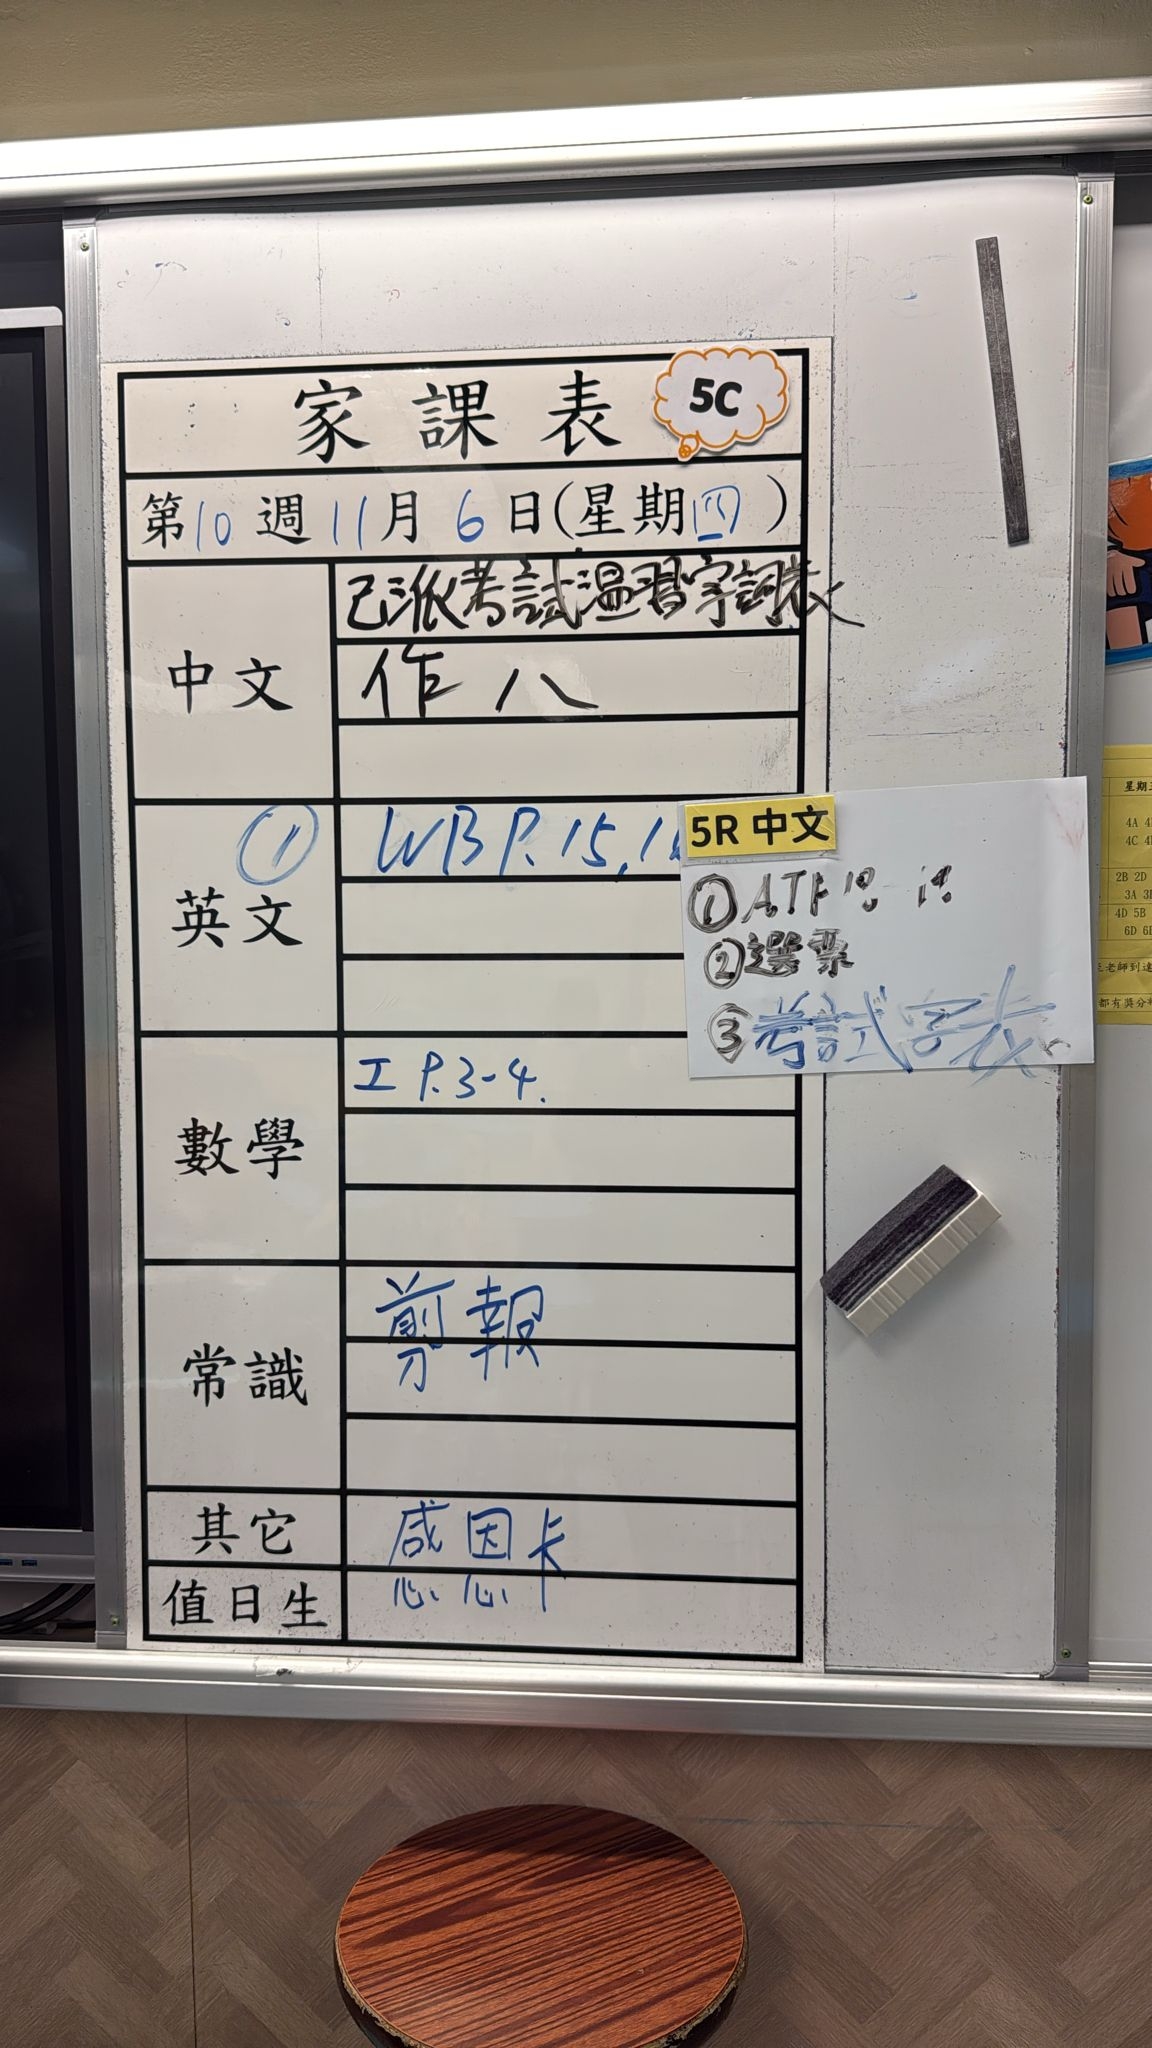 家課表
5C
第10週11月6日(星期四)
中文
已派考試溫習字詞表
作八
英文
①
WB P.15,
5R 中文
①
②選票
③考試字表
數學
工 P.3-4.
常識
剪報
其它
感恩卡
值日生
星期
4A
4C
2B 2D
3A
4D 5B
6D
老師到
都有獎分